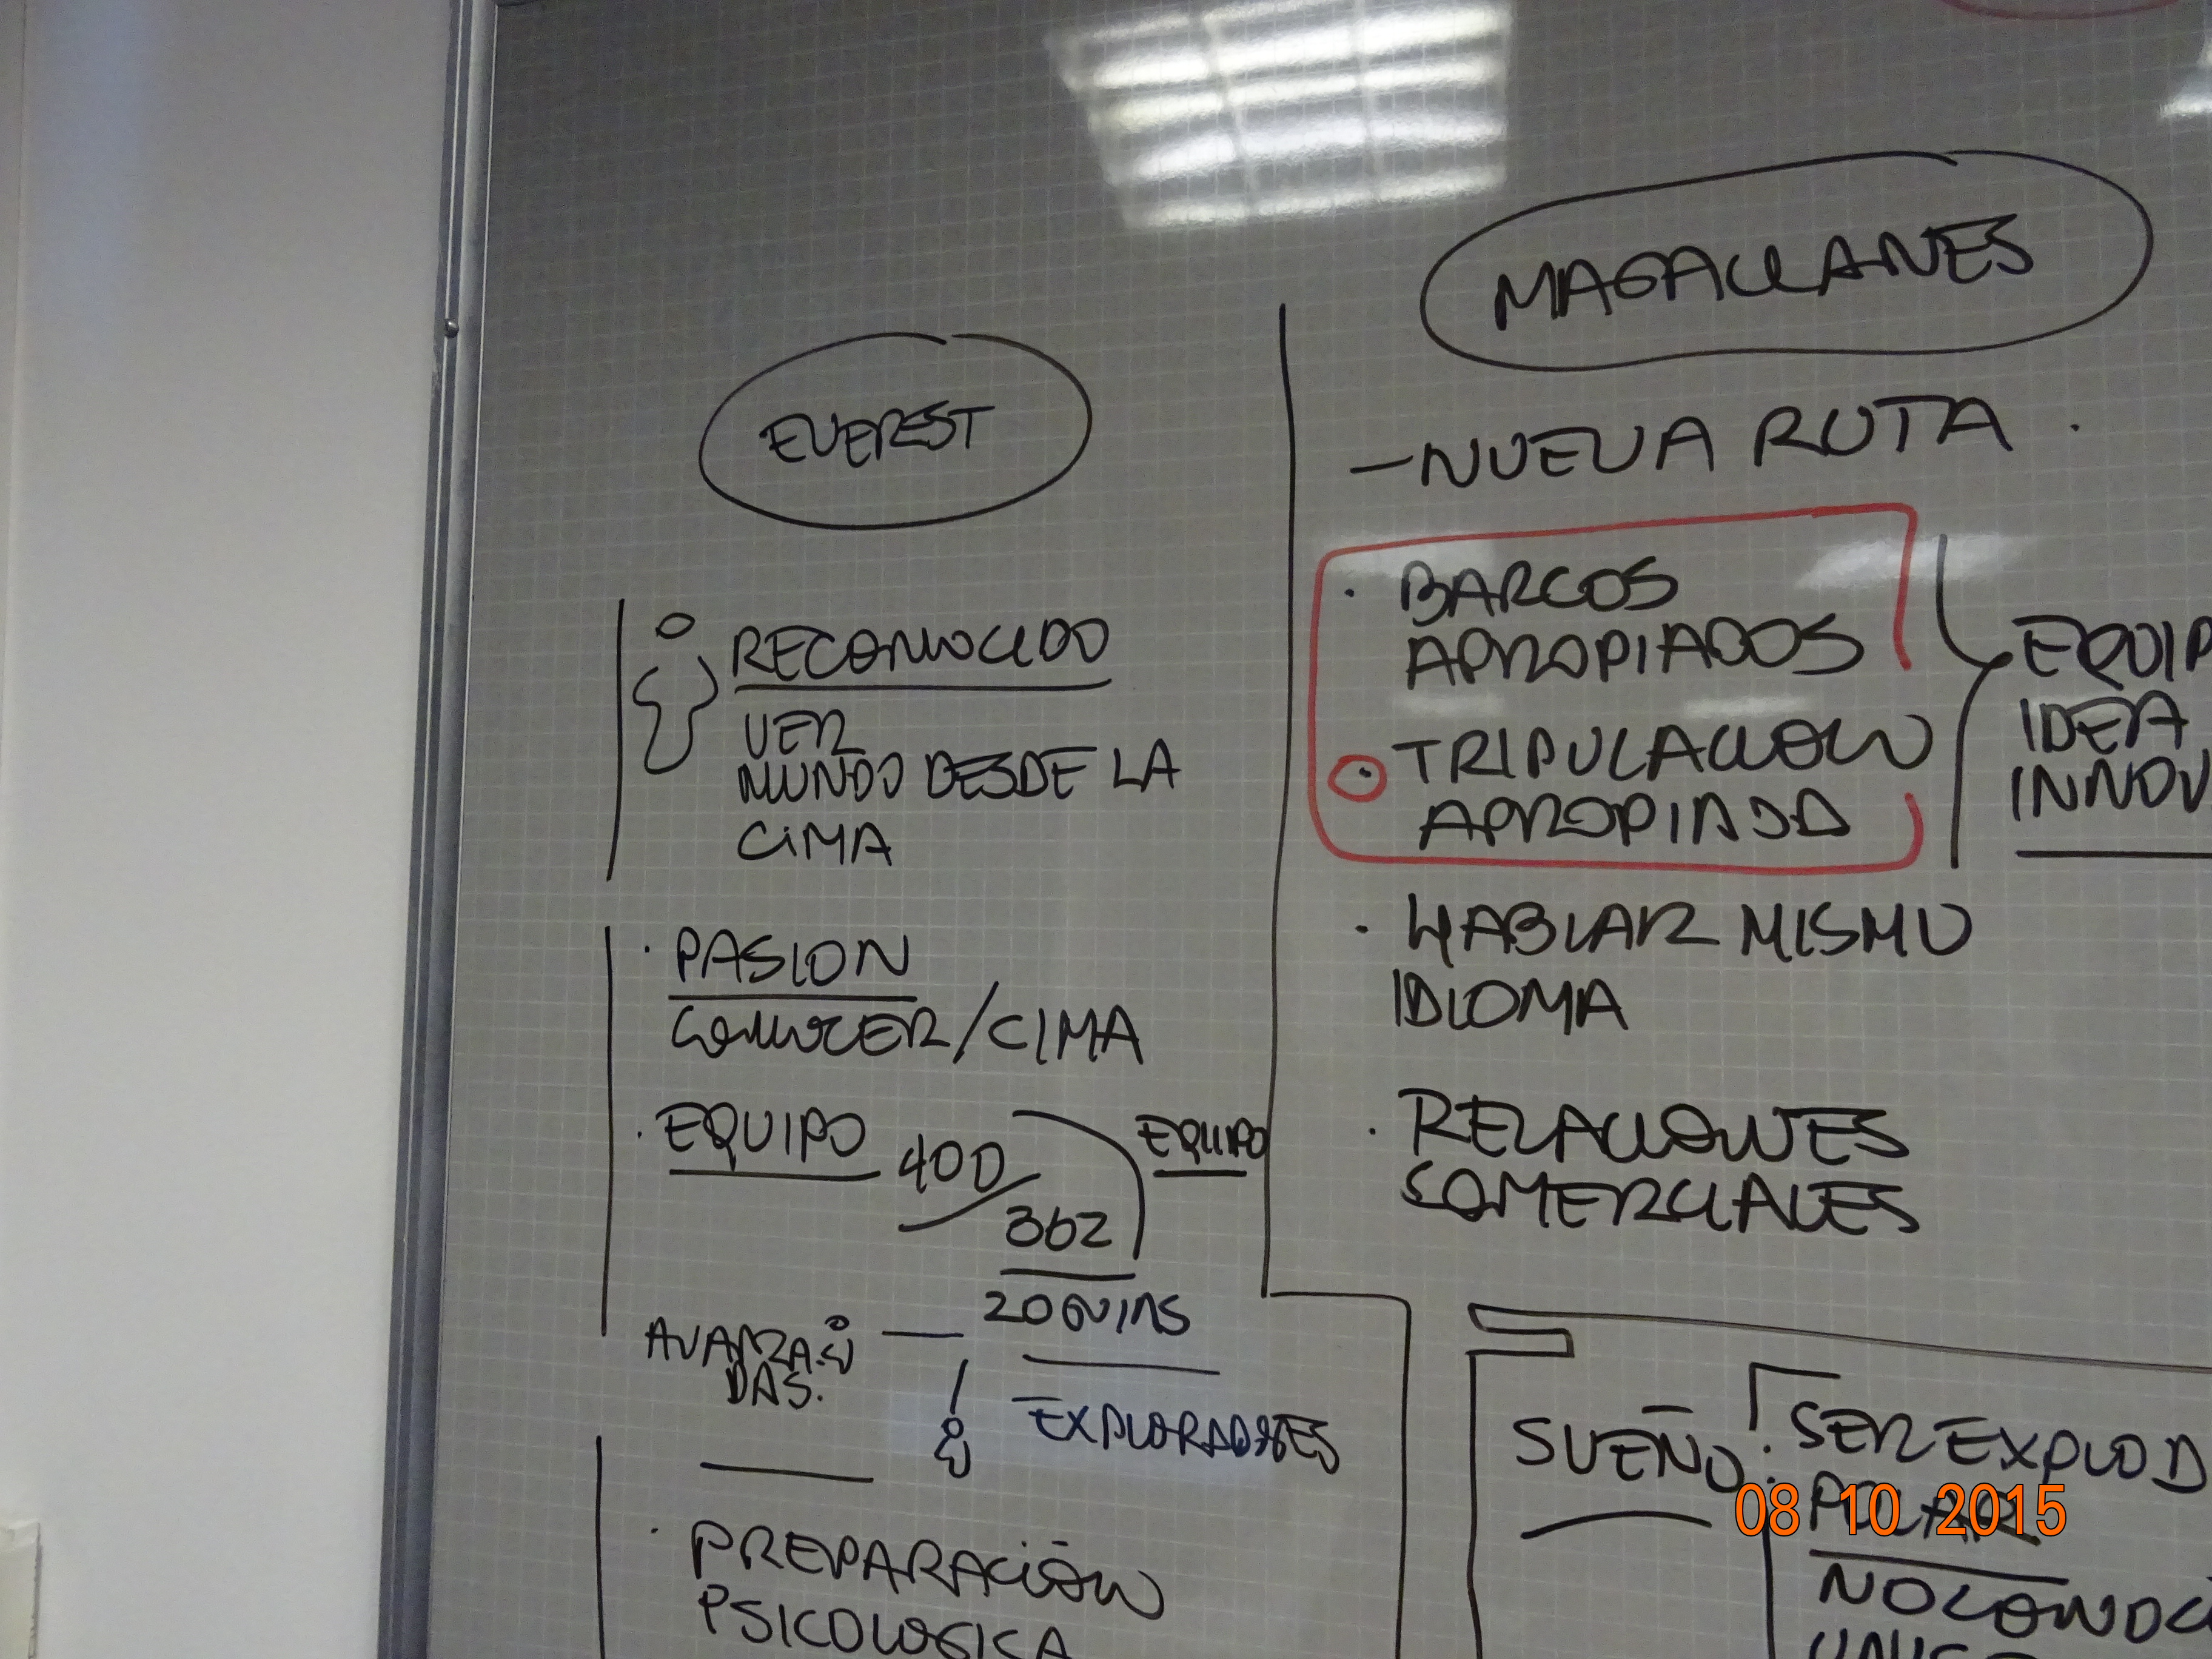 EVEREST
RECONOCIDO
VER
MUNDO DESDE LA
CIMA
· PASION
CONOCER/CIMA
· EQUIPO 400
362
EQUIPO
20 GUIAS
AVANZA
DAS.
EXPLORADORES
· PREPARACIÓN
PSICOLOGICA
MAGALLANES
- NUEVA RUTA .
· BARCOS
APROPIADOS
· TRIPULACION
APROPIADA
EQUIP
IDEA
INNOV
· HABLAR MISMO
IDIOMA
· RELACIONES
COMERCIALES
SUEÑO
· SER EXPLOD
POLAR
NO CONOC
08 10 2015